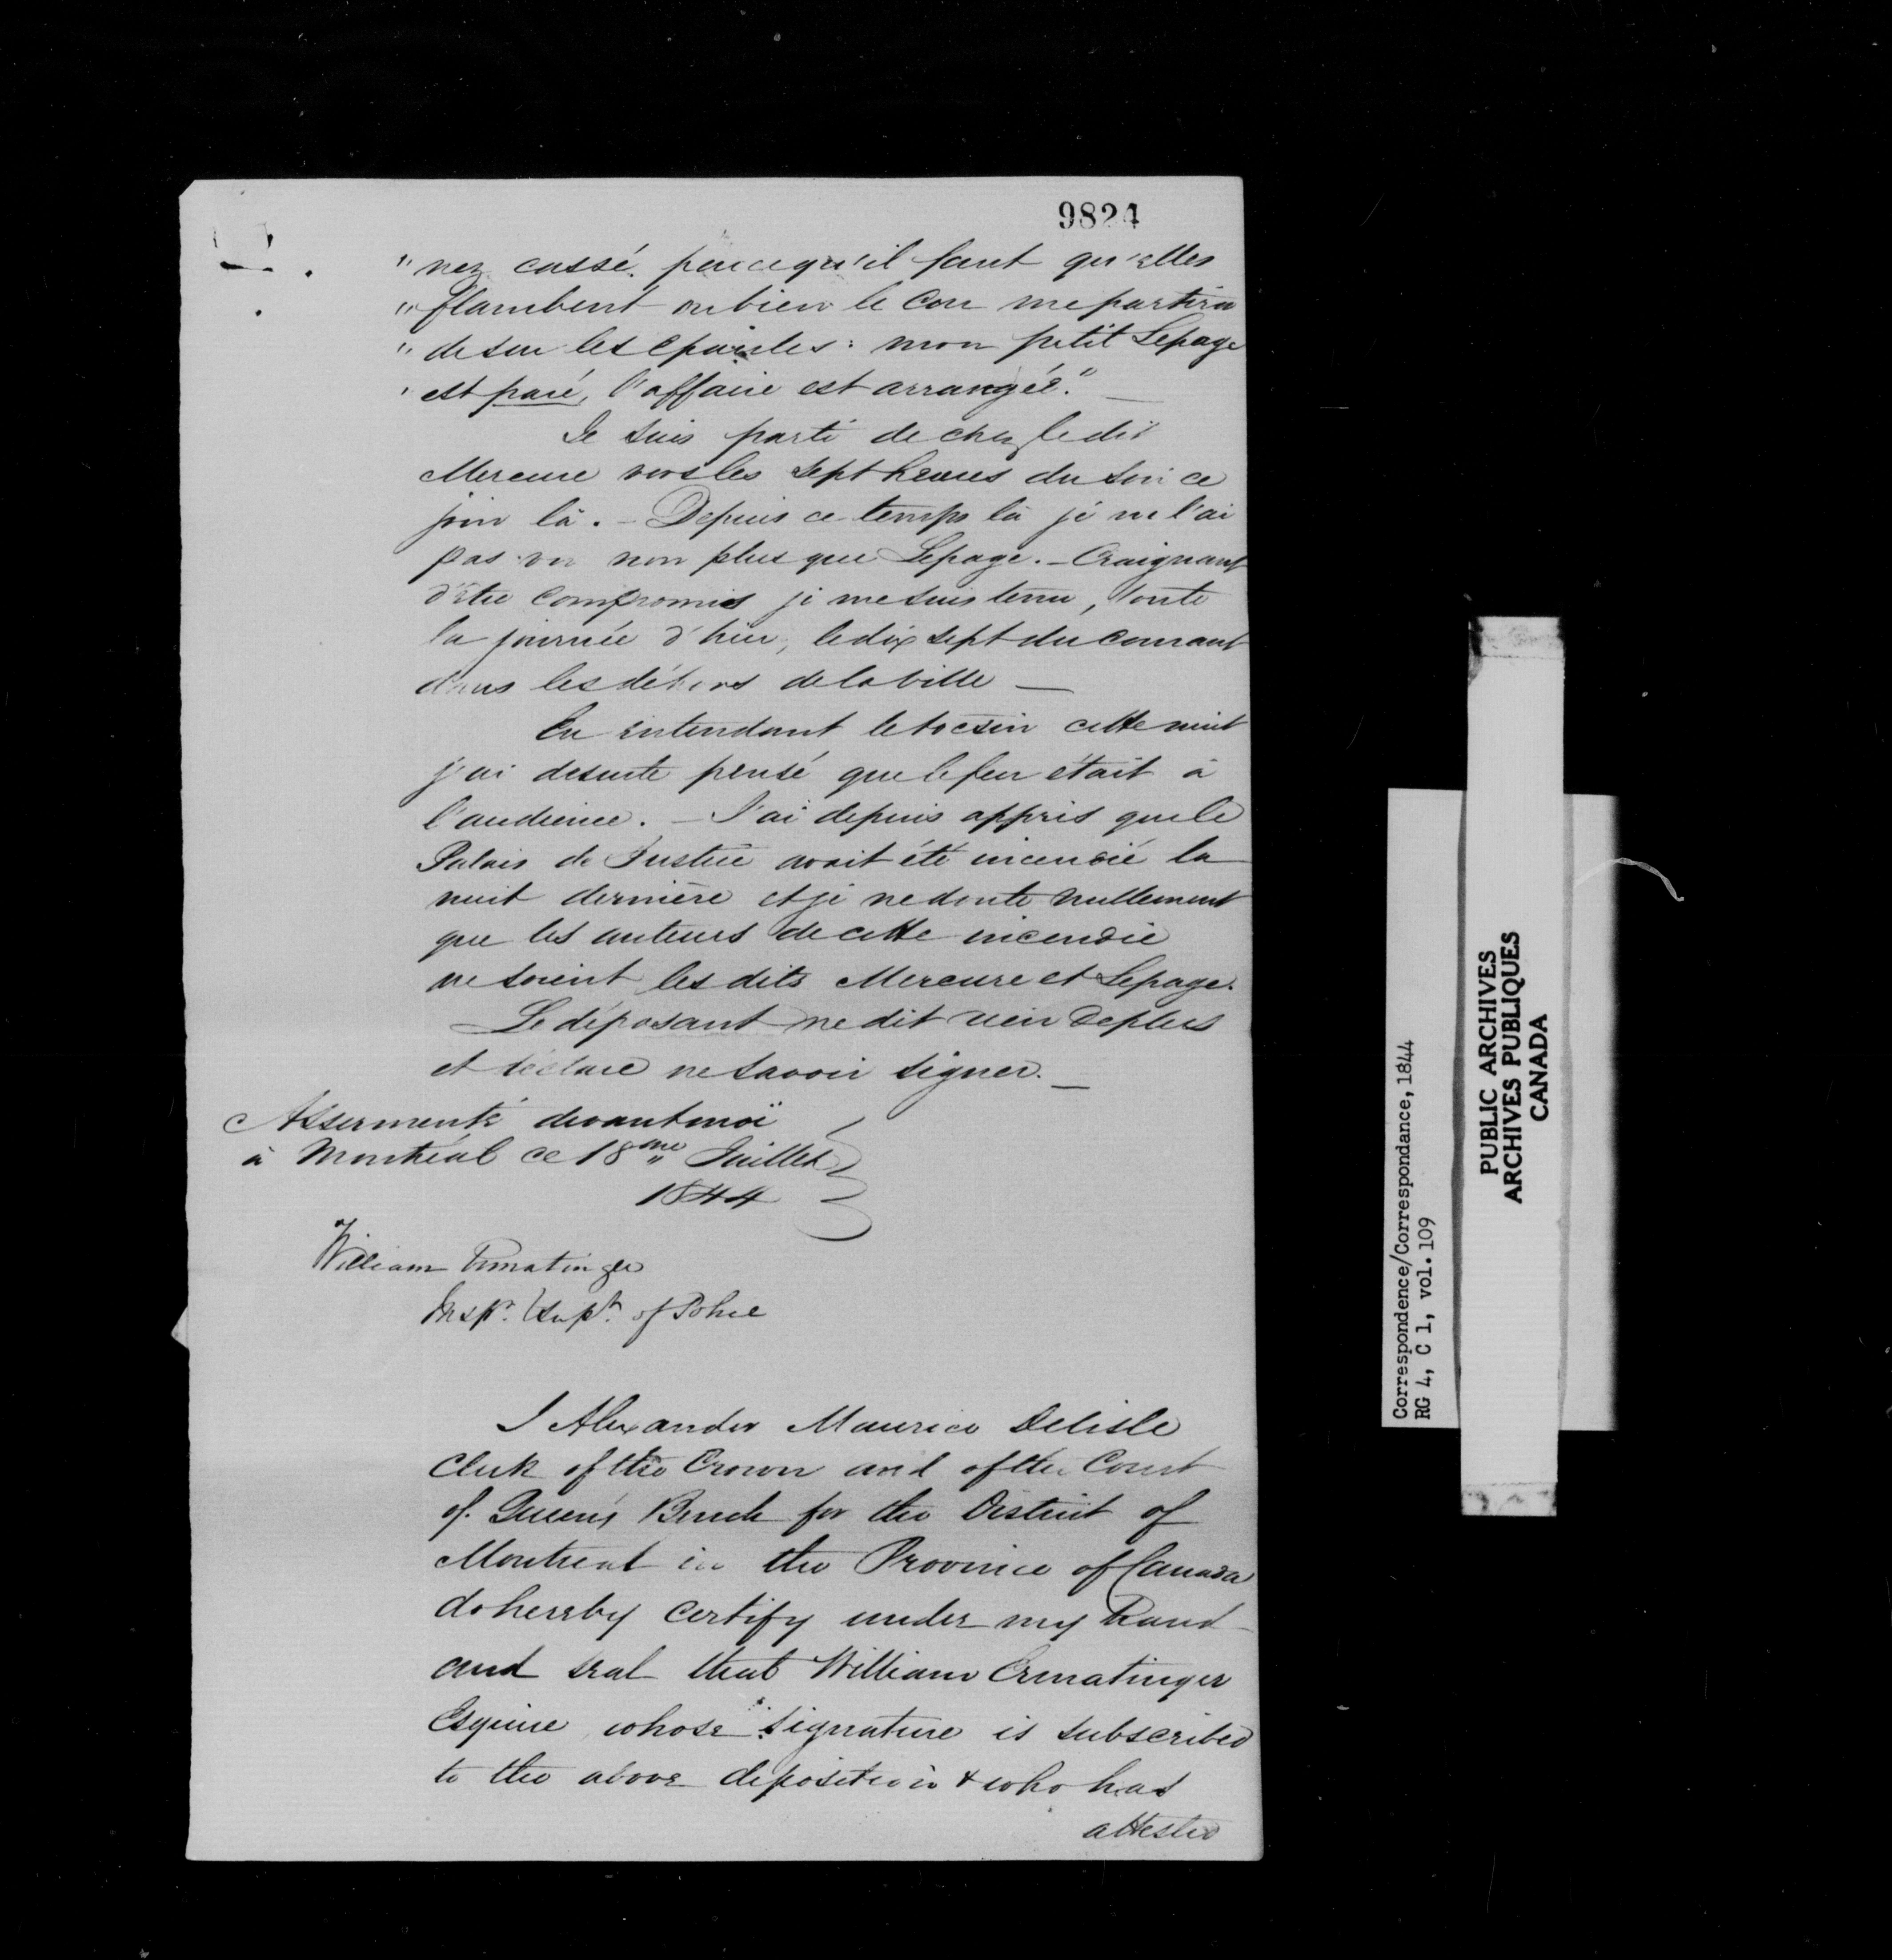 9824
" nez cassé. parcequ'il faut qu'elles
" flambent ou bien le cou me partira
" de sur les épaules : mon petit Lepage
" est paré, l'affaire est arrangée." —
Je suis parti de chez le dit
Mercure vers les sept heures du soir ce
jour là. — Depuis ce temps là je ne l'ai
pas vu non plus que Lepage. — Craignant
d'être compromis je me suis tenu, toute
la journée d'hier, le dix sept du courant
dans les déhors de la ville —
En entendant le tocsin cette nuit
j'ai desuite pensé que le feu était à
l'audience. — J'ai depuis appris que le
Palais de Justice avait été incendié la
nuit dernière et je ne doute nullement
que les auteurs de cette incendie
ne soient les dits Mercure et Lepage.
Le déposant ne dit rien de plus
et déclare ne savoir signer. —
Assermenté devant moi
à Montréal ce 18me Juillet
1844
William Ermatinger
Inspr. & Supt. of Police
I Alexander Maurice Delisle
Clerk of the Crown and of the Court
of Queen's Bench for the District of
Montreal in the Province of Canada
do hereby certify under my hand
and seal that William Ermatinger
Esquire whose signature is subscribed
to the above deposition & who has
attested
Correspondence/Correspondance, 1844
RG 4, C 1, vol. 109
PUBLIC ARCHIVES
ARCHIVES PUBLIQUES
CANADA